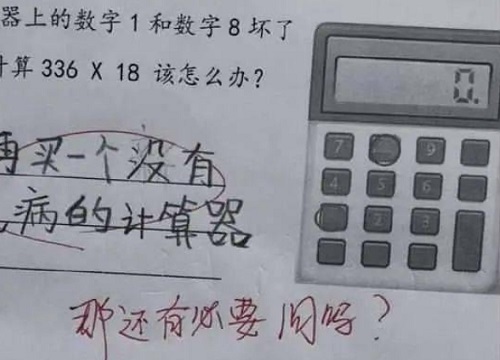 器上的数字1和数字8坏了
计算336 X 18 该怎么办?
再买一个没有
病的计算器
那还有必要问吗?
0.
7
9
4
5
6
2
3